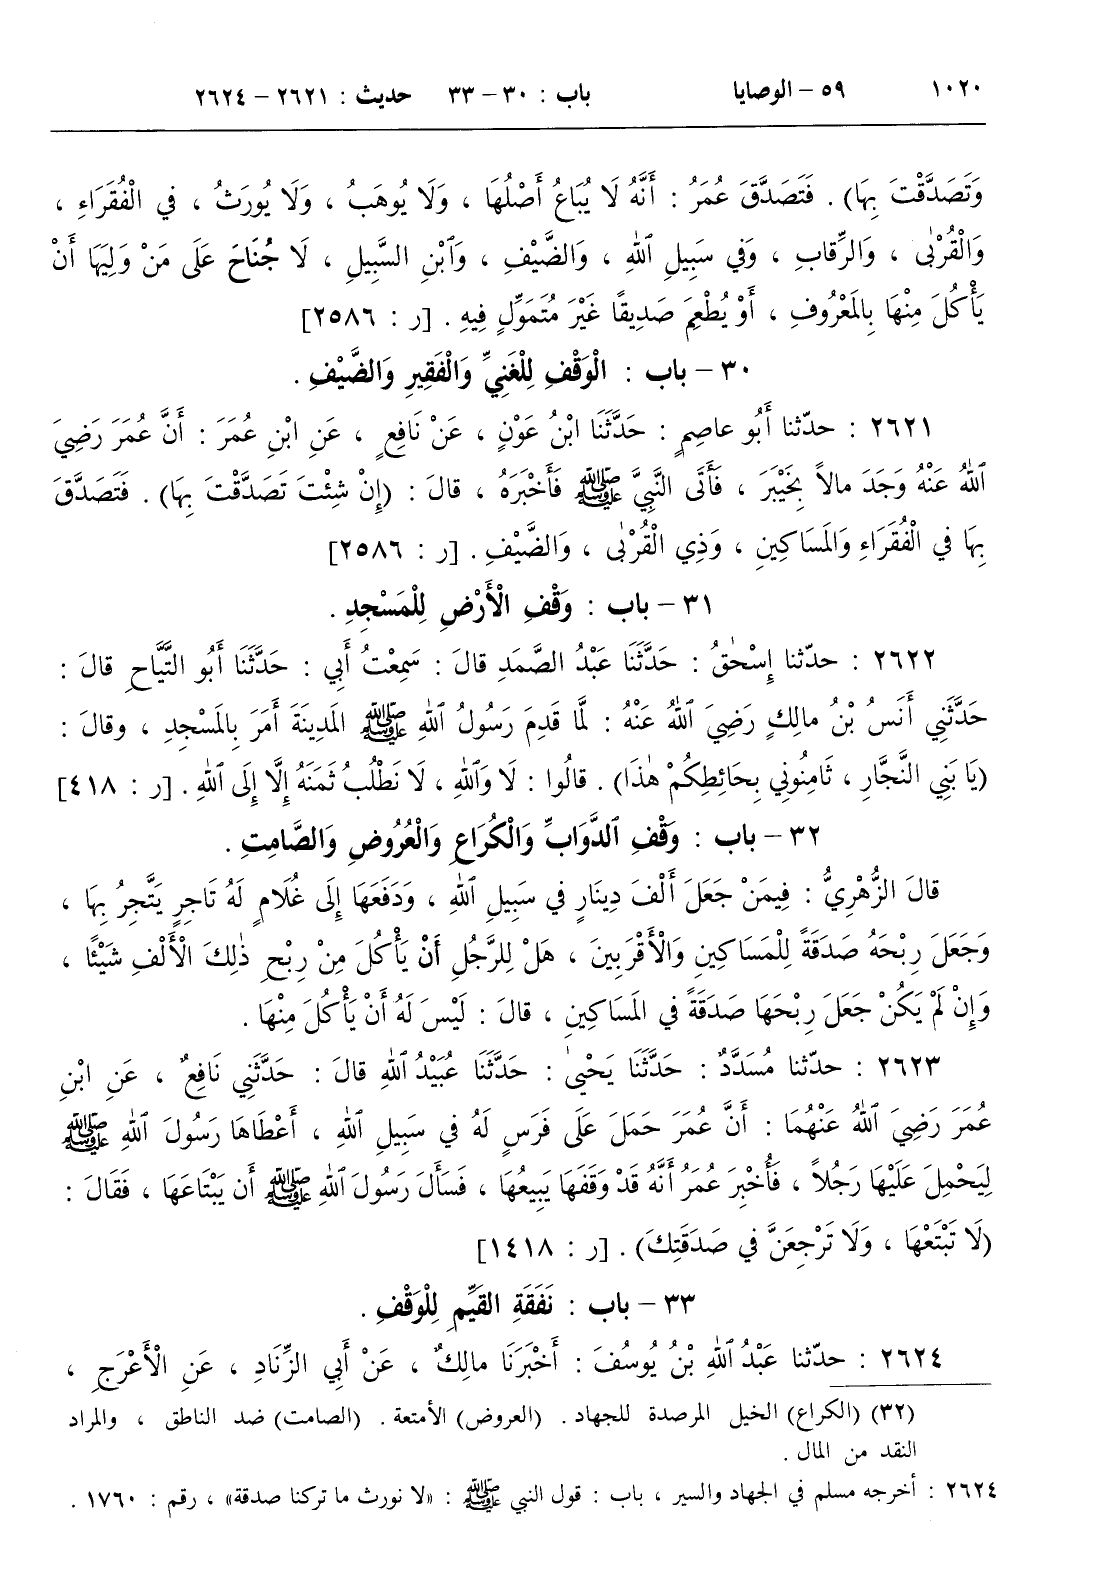 ١٠٢٠ ٥٩ - الوصايا باب : ٣٠ - ٣٣ حديث : ٢٦٢١ - ٢٦٢٤
وَتَصَدَّقْتَ بِهَا) . فَتَصَدَّقَ عُمَرُ : أَنَّهُ لَا يُبَاعُ أَصْلُهَا ، وَلَا يُوهَبُ ، وَلَا يُورَثُ ، في الْفُقَرَاءِ ،
وَالْقُرْبٰى ، وَالرِّقابِ ، وَفي سَبِيلِ ٱللهِ ، وَالضَّيْفِ ، وَٱبْنِ السَّبِيلِ ، لَا جُنَاحَ عَلَى مَنْ وَلِيَهَا أَنْ
يَأْكُلَ مِنْهَا بِالمَعْرُوفِ ، أَوْ يُطْعِمَ صَدِيقًا غَيْرَ مُتَمَوِّلٍ فِيهِ . [ر : ٢٥٨٦]
٣٠ - باب : الْوَقْفِ لِلْغَنِيِّ وَالْفَقِيرِ وَالضَّيْفِ .
٢٦٢١ : حدّثنا أَبُو عاصِمٍ : حَدَّثَنَا ابْنُ عَوْنٍ ، عَنْ نَافِعٍ ، عَنِ ابْنِ عُمَرَ : أَنَّ عُمَرَ رَضِيَ
ٱللهُ عَنْهُ وَجَدَ مالاً بِخَيْبَرَ ، فَأَتَى النَّبِيَّ ﷺ فَأَخْبَرَهُ ، قالَ : (إِنْ شِئْتَ تَصَدَّقْتَ بِهَا) . فَتَصَدَّقَ
بِهَا في الْفُقَرَاءِ وَالمَسَاكِينِ ، وَذِي الْقُرْبٰى ، وَالضَّيْفِ . [ر : ٢٥٨٦]
٣١ - باب : وَقْفِ الْأَرْضِ لِلْمَسْجِدِ .
٢٦٢٢ : حدّثنا إِسْحٰقُ : حَدَّثَنَا عَبْدُ الصَّمَدِ قالَ : سَمِعْتُ أَبِي : حَدَّثَنَا أَبُو التَّيَّاحِ قالَ :
حَدَّثَنِي أَنَسُ بْنُ مالِكٍ رَضِيَ ٱللهُ عَنْهُ : لَمَّا قَدِمَ رَسُولُ ٱللهِ ﷺ المَدِينَةَ أَمَرَ بِالمَسْجِدِ ، وقالَ :
(يَا بَنِي النَّجَّارِ ، ثَامِنُونِي بِحَائِطِكُمْ هٰذَا) . قالُوا : لَا وَٱللهِ ، لَا نَطْلُبُ ثَمَنَهُ إِلَّا إِلَى ٱللهِ . [ر : ٤١٨]
٣٢ - باب : وَقْفِ ٱلدَّوَابِّ وَالْكُرَاعِ وَالْعُرُوضِ وَالصَّامِتِ .
قالَ الزُّهْرِيُّ : فِيمَنْ جَعَلَ أَلْفَ دِينَارٍ في سَبِيلِ ٱللهِ ، وَدَفَعَهَا إِلَى غُلَامٍ لَهُ تَاجِرٍ يَتَّجِرُ بِهَا ،
وَجَعَلَ رِبْحَهُ صَدَقَةً لِلْمَسَاكِينِ وَالْأَقْرَبِينَ ، هَلْ لِلرَّجُلِ أَنْ يَأْكُلَ مِنْ رِبْحِ ذٰلِكَ الْأَلْفِ شَيْئًا ،
وَإِنْ لَمْ يَكُنْ جَعَلَ رِبْحَهَا صَدَقَةً في المَسَاكِينِ ، قالَ : لَيْسَ لَهُ أَنْ يَأْكُلَ مِنْهَا .
٢٦٢٣ : حدّثنا مُسَدَّدٌ : حَدَّثَنَا يَحْيىٰ : حَدَّثَنَا عُبَيْدُ ٱللهِ قالَ : حَدَّثَنِي نَافِعٌ ، عَنِ ابْنِ
عُمَرَ رَضِيَ ٱللهُ عَنْهُمَا : أَنَّ عُمَرَ حَمَلَ عَلَى فَرَسٍ لَهُ في سَبِيلِ ٱللهِ ، أَعْطَاهَا رَسُولَ ٱللهِ ﷺ
لِيَحْمِلَ عَلَيْهَا رَجُلاً ، فَأُخْبِرَ عُمَرُ أَنَّهُ قَدْ وَقَفَهَا يَبِيعُهَا ، فَسَأَلَ رَسُولَ ٱللهِ ﷺ أَن يَبْتَاعَهَا ، فَقَالَ :
(لَا تَبْتَعْهَا ، وَلَا تَرْجِعَنَّ في صَدَقَتِكَ) . [ر : ١٤١٨]
٣٣ - باب : نَفَقَةِ القَيِّمِ لِلْوَقْفِ .
٢٦٢٤ : حدّثنا عَبْدُ ٱللهِ بْنُ يُوسُفَ : أَخْبَرَنَا مالِكٌ ، عَنْ أَبِي الزِّنَادِ ، عَنِ الْأَعْرَجِ ،
(٣٢) (الكراع) الخيل المرصدة للجهاد . (العروض) الأمتعة . (الصامت) ضد الناطق ، والمراد
النقد من المال .
٢٦٢٤ : أخرجه مسلم في الجهاد والسير ، باب : قول النبي ﷺ : «لا نورث ما تركنا صدقة» ، رقم : ١٧٦٠ .